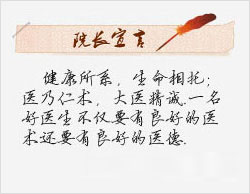 院长宣言
健康所系，生命相托；
医乃仁术，大医精诚.一名
好医生不仅要有良好的医
术还要有良好的医德.